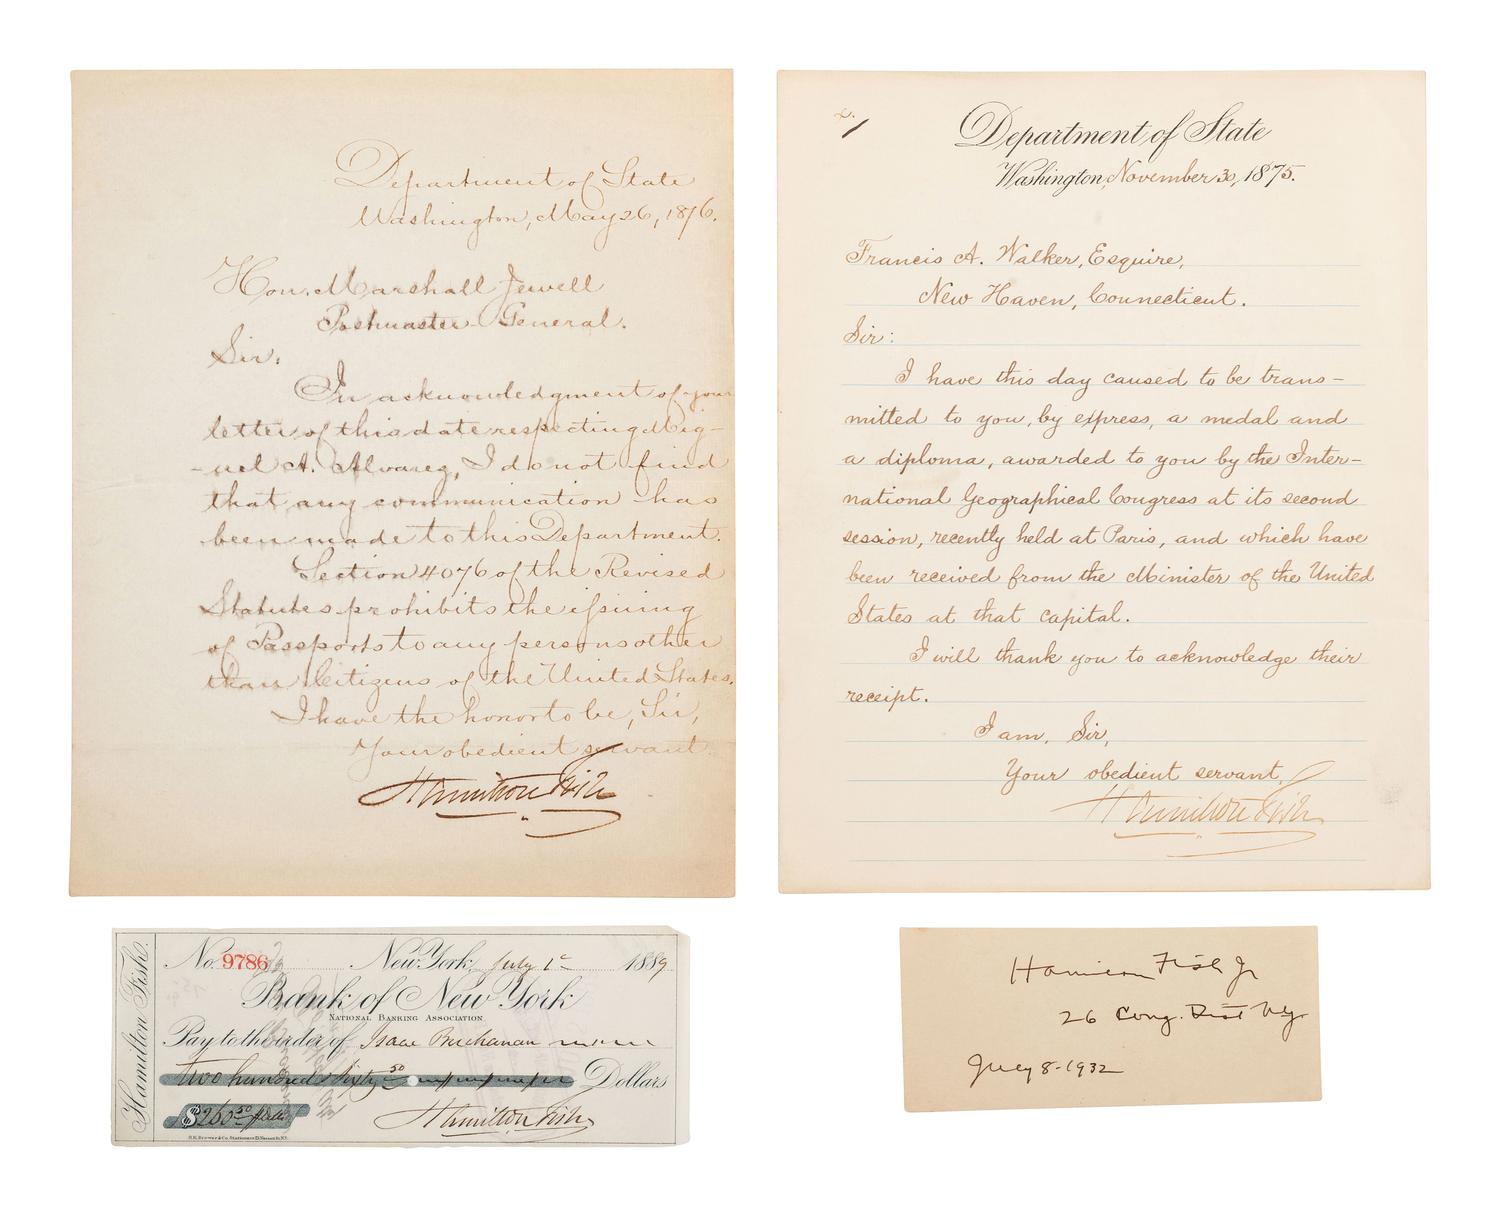 Department of State
Washington, May 26, 1876.
Hon. Marshall Jewell
Postmaster-General.
Sir:
In acknowledgment of your
letter of this date respecting Mig-
-uel A. Alvarez, I do not find
that any communication has
been made to this Department.
Section 4076 of the Revised
Statutes prohibits the issuing
of Passports to any persons other
than Citizens of the United States.
I have the honor to be, Sir,
Your obedient servant
Hamilton Fish
Department of State
Washington, November 30, 1875.
Francis A. Walker, Esquire,
New Haven, Connecticut.
Sir:
I have this day caused to be trans-
mitted to you, by express, a medal and
a diploma, awarded to you by the Inter-
national Geographical Congress at its second
session, recently held at Paris, and which have
been received from the Minister of the United
States at that capital.
I will thank you to acknowledge their
receipt.
I am, Sir,
Your obedient servant,
Hamilton Fish
Hamilton Fish.
No. 9786 New York, July 1st 1889
Bank of New York
NATIONAL BANKING ASSOCIATION.
Pay to the order of Isaac Buchanan
Two hundred & Sixty 50 Dollars
$260.50
Hamilton Fish
Hamilton Fish Jr
26 Cong. Dist N.Y.
July 8-1932